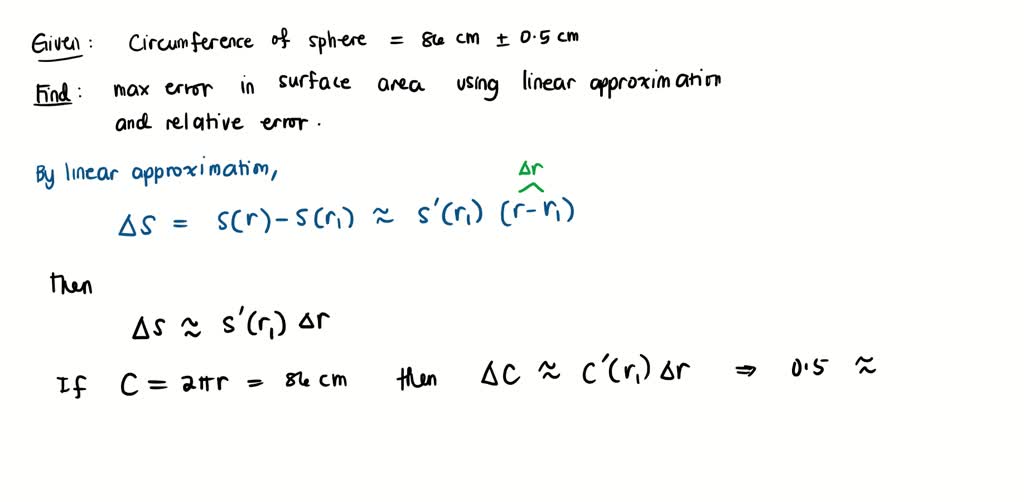 Given: Circumference of sphere = 86 cm ± 0.5 cm
Find: max error in surface area using linear approximation
and relative error.
By linear approximation,
Δr
ΔS = S(r) - S(r₁) ≈ S'(r₁) (r - r₁)
then
ΔS ≈ S'(r₁) Δr
If C = 2πr = 86 cm then ΔC ≈ C'(r₁) Δr ⇒ 0.5 ≈